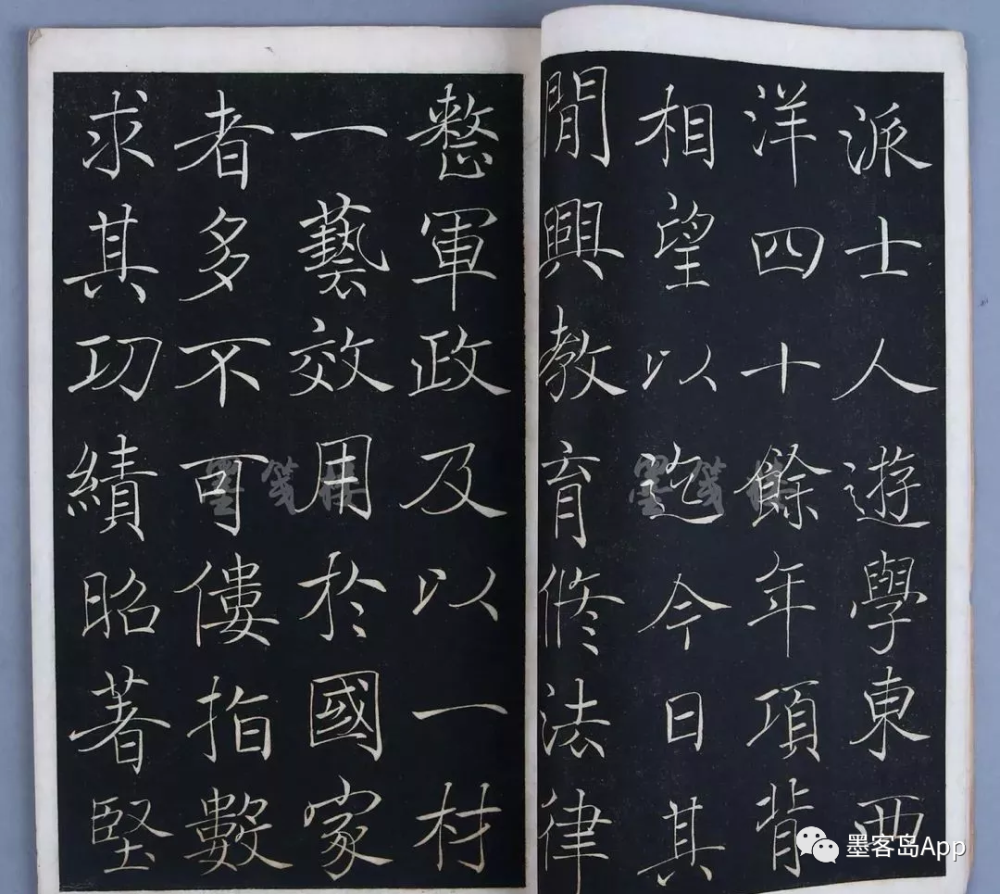 派士人遊學東西
洋四十餘年項背
相望以迄今日其
閒興教育修法律
整軍政及以一材
一藝效用於國家
者多不可僂指數
求其功績昭著堅
墨箋樓
墨箋樓
墨客岛App